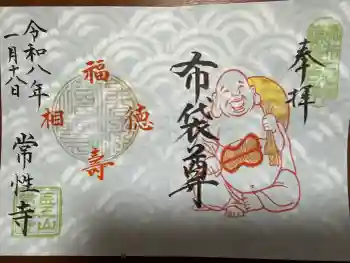 奉拝
布袋尊
福
德
壽
相
令和八年
一月十八日
常性寺